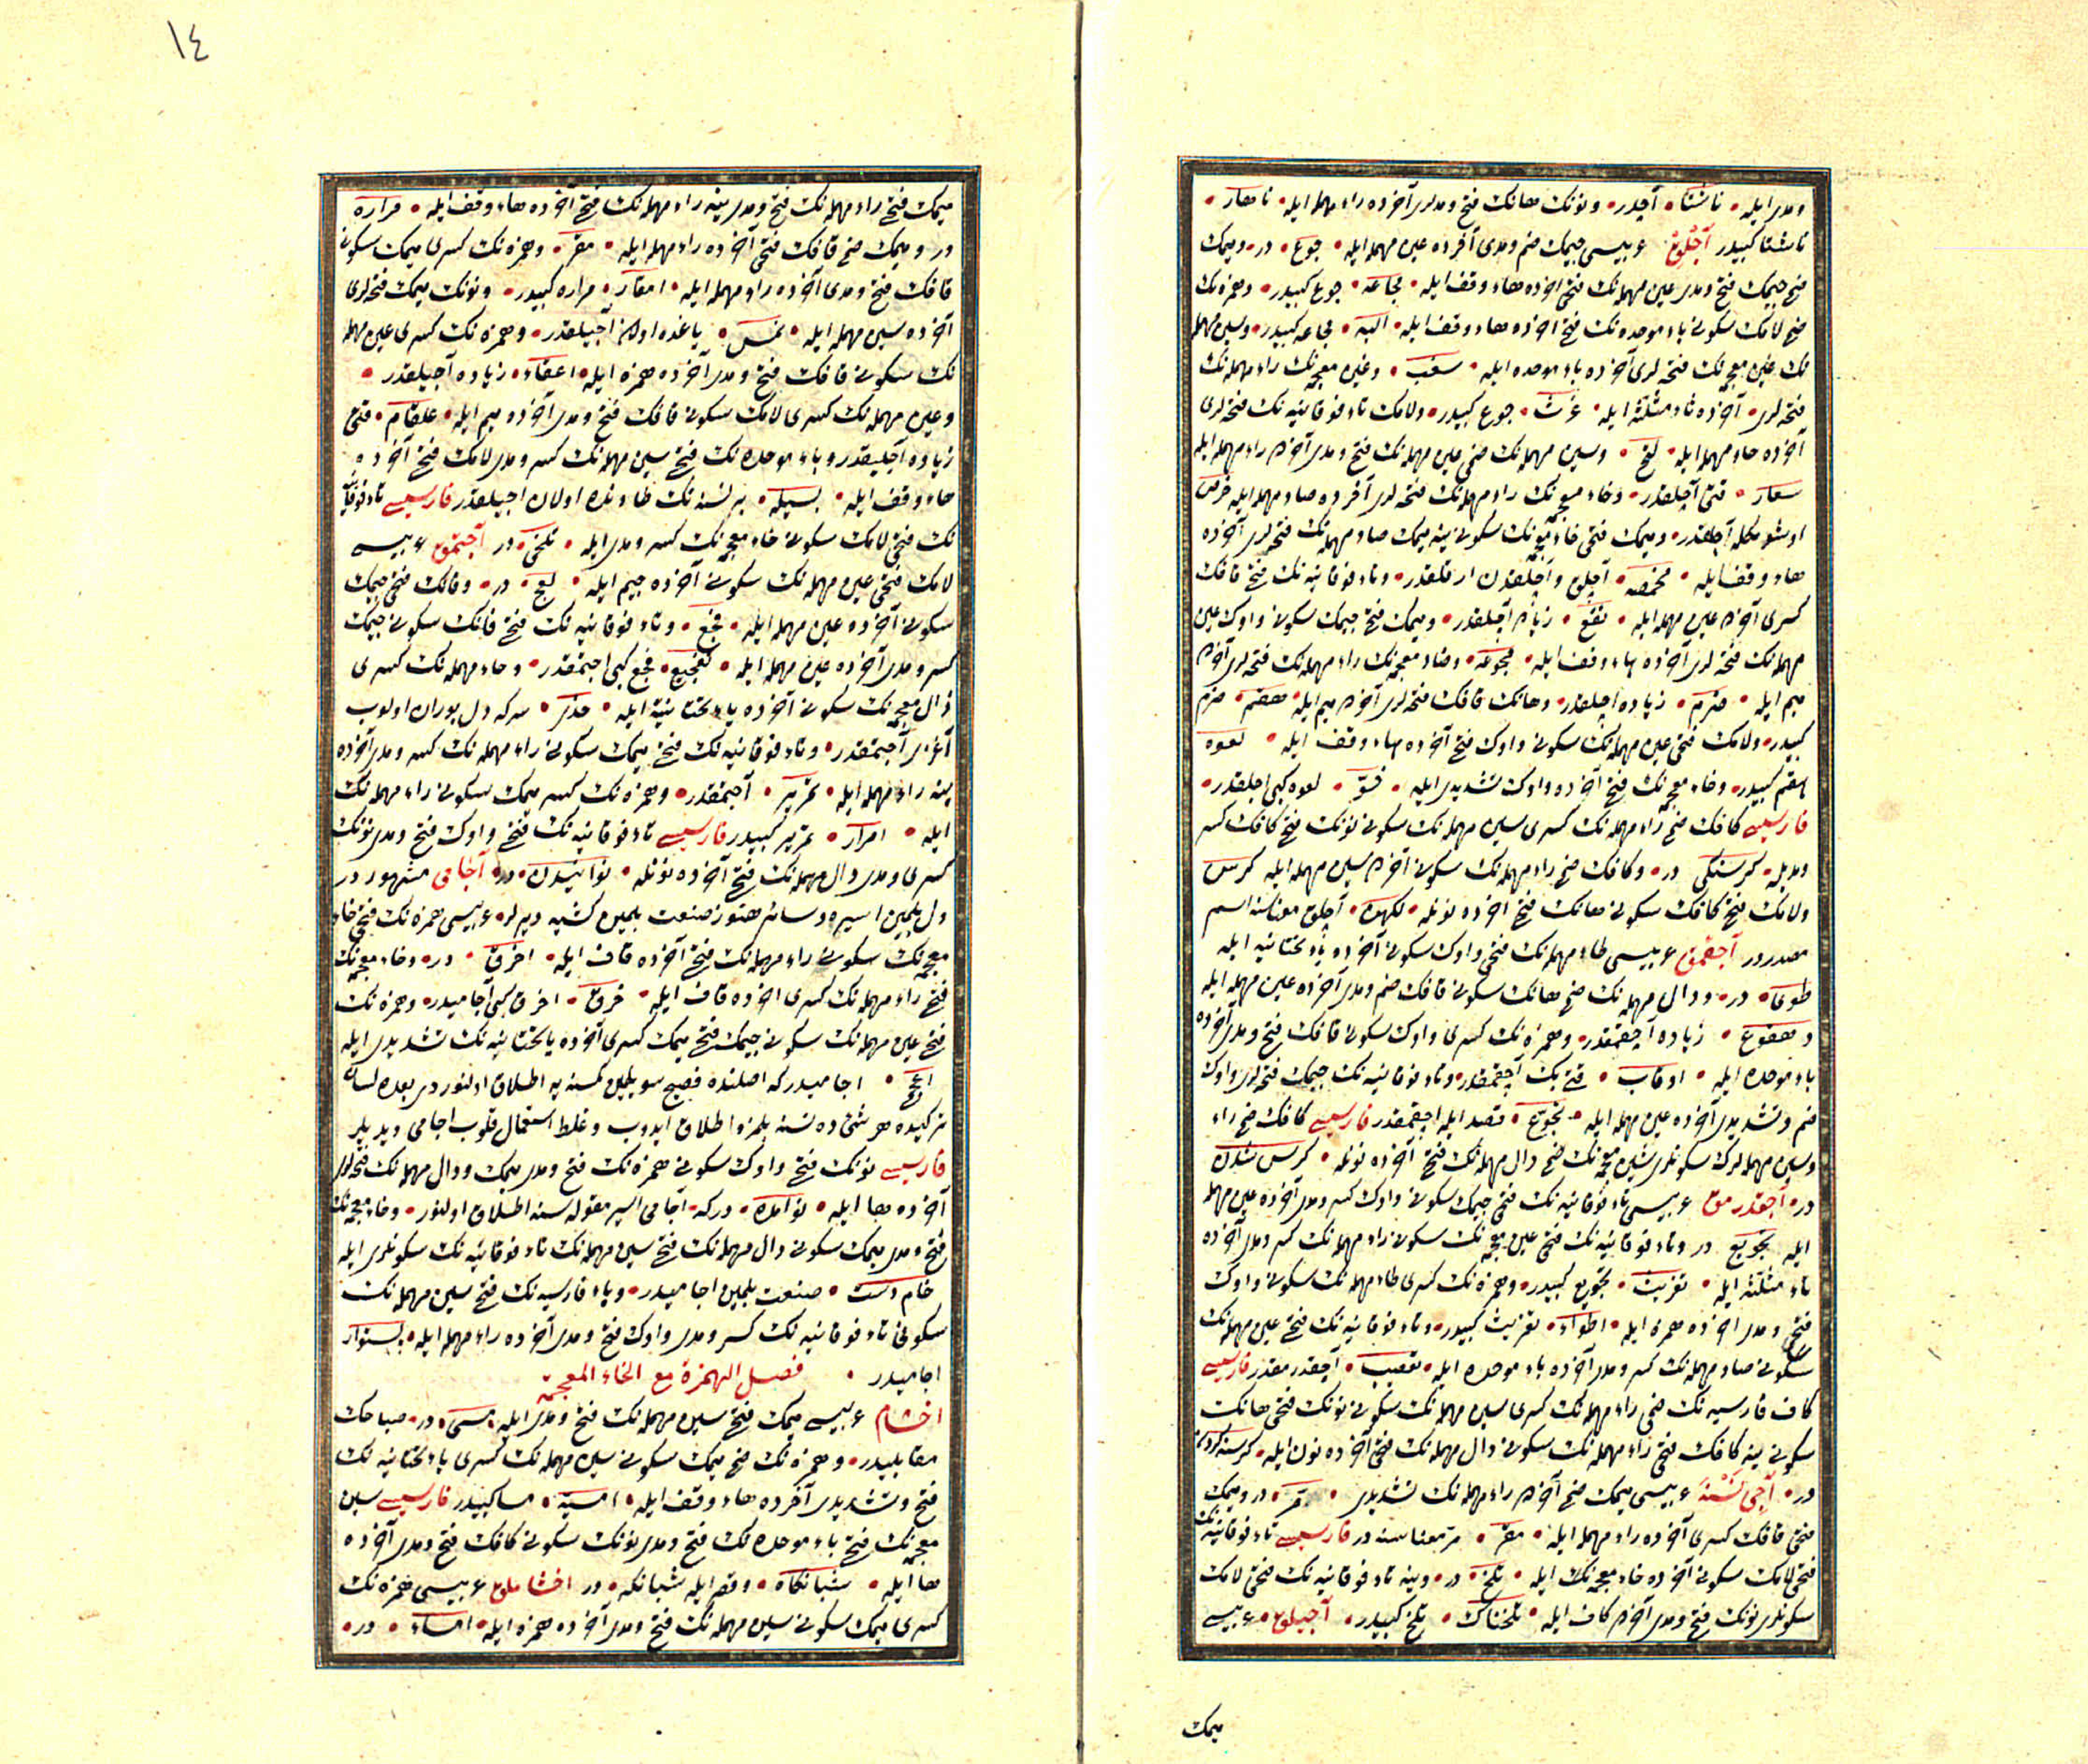 ومدی ایله ناشتا آچدر ونونك هانك فتح ومدلری آخرده راء مهمله ایله ناهار
ناشتا كبیدر آجلق عربیسی جیمك ضم ومدی آخرده عین مهمله ایله جوع در ومیمك
فتح جیمك فتح ومدی عین مهمله نك فتحی آخرده هاء وقف ایله مجاعه جوع كبیدر وهمزه نك
ضم لامك سكونی باء موحده نك فتح آخرده هاء وقف ایله البه مجاعه كبیدر وسین مهمله
نك غین معجمه نك فتحه لری آخرده باء موحده ایله سغب وغین معجمه نك راء مهمله نك
فتحه لری آخرده ثاء مثلثه ایله غرث جوع كبیدر ولامك تاء فوقانیه نك فتحه لری
آخرده حاء مهمله ایله لتح وسین مهمله نك ضمی عین مهمله نك فتح ومدی آخره راء مهمله ایله
سعار قتی آچلقدر وخاء معجمه نك راء مهمله نك فتحه لری آخرده صاد مهمله ایله خرص
آچلقدر ومیمك فتحی خاء معجمه نك سكونی ینه میمك صاد مهمله نك فتحه لری آخرده
هاء وقف ایله مخمصه آچلق وآچلقدن ارقلقدر وتاء فوقانیه نك فتح قافك
كسری آخره عین مهمله ایله زیاده آچلقدر ومیمك فتح جیمك سكونی واوك عین
مهمله نك فتحه لری آخرده هاء وقف ایله مجوعه وضاد معجمه نك راء مهمله نك فتحه لری آخره
میم ایله ضرم زیاده آچلقدر وهانك قافك فتحه لری آخره میم ایله هقم ضرم
كبیدر ولامك فتحی عین مهمله نك سكونی واوك فتح آخرده هاء وقف ایله لعوه
هقم كبیدر وخاء معجمه نك فتح آخرده واوك تشدیدی ایله خو لعوه كبی اچلقدر
فارسیسی كافك ضم راء مهمله نك كسری سین مهمله نك سكونی نونك فتح كافك كسر
ومدیله كرسنكی در وكافك ضم راء مهمله نك سكونی آخره سین مهمله ایله كرس
ولامك فتح كافك سكونی هانك فتح آخرده نونله لكهن آچلق معناسنه اسم
مصدردر آجقمق عربیسی طاء مهمله نك فتحی واوك سكونی آخرده یاء تحتانیه ایله
طوی در ودال مهمله نك ضم هانك سكونی قافك ضم ومدی آخرده عین مهمله ایله
دهقوع زیاده آجقمقدر وهمزه نك كسری واوك سكونی قافك فتح ومدی آخرده
باء موحده ایله اوقاب قتی پك آجقمقدر وتاء فوقانیه نك جیمك فتحه لری واوك
ضم وتشدیدی آخرده عین مهمله ایله تجوع قصد ایله اجقمقدر فارسیسی كافك ضم راء
وسین مهمله لرك سكونلری شین معجمه نك ضم دال مهمله نك فتح آخرده نونله كرس شدن
در آجقدرمق عربیسی تاء فوقانیه نك فتح جیمك سكونی واوك كسر ومدی آخرده عین مهمله
ایله تجویع در وتاء فوقانیه نك فتحی غین معجمه نك سكونی راء مهمله نك كسر ومدی آخرده
ثاء مثلثه ایله تغریث تجویع كبیدر وهمزه نك كسری طاء مهمله نك سكونی واوك
فتحی ومدی آخرده همزه ایله اطواء تغریث كبیدر وتاء فوقانیه نك فتح عین مهمله نك
سكونی صاد مهمله نك كسر ومدی آخرده باء موحده ایله تعصیب آجقدرمقدر فارسیسی
كاف فارسیه نك ضمی راء مهمله نك كسری سین مهمله نك سكونی نونك فتحی هانك
سكونی ینه كافك فتحی راء مهمله نك سكونی دال مهمله نك فتحی آخرده نون ایله كرسنه كردن
در آجی نسنه عربیسی میمك ضم آخره راء مهمله نك تشدیدی مر در ومیمك
فتحی قافك كسری آخرده راء مهمله ایله مقر مر معناسنه در فارسیسی تاء فوقانیه نك
فتحی لامك سكونی آخرده خاء معجمه نك ایله تلخ در وینه تاء فوقانیه نك فتحی لامك
سكونلری نونك فتح ومدی آخره كاف ایله تلخناك تلخ كبیدر آجیلق عربیسی
میمك
١٤
میمك فتح راء مهمله نك فتح ومدی ینه راء مهمله نك فتح آخرده هاء وقف ایله مراره
در ومیمك ضم قافك فتحی آخرده راء مهمله ایله مقر وهمزه نك كسری میمك سكونی
قافك فتح ومدی آخرده راء مهمله ایله امقار مراره كبیدر ونونك میمك فتحه لری
آخرده سین مهمله ایله نمس یاغده اولان آجیلقدر وهمزه نك كسری عین مهمله
نك سكونی قافك فتح ومدی آخرده همزه ایله اعقاء زیاده آجیلقدر
وعین مهمله نك كسری لامك سكونی قافك فتح ومدی آخرده میم ایله علقام قتی
زیاده آجیلقدر وباء موحده نك فتح سین مهمله نك كسر ومدی لامك فتح آخرده
هاء وقف ایله بسیله بر نسنه نك طادنده اولان اجیلقدر فارسیسی تاء فوقانیه
نك فتحی لامك سكونی خاء معجمه نك كسر ومدی ایله تلخی در آجیتمق عربیسی
لامك فتحی عین مهمله نك سكونی آخرده جیم ایله لعج در وفانك فتحی جیمك
سكونی آخرده عین مهمله ایله فجع وتاء فوقانیه نك فتح فانك سكونی جیمك
كسر ومدی آخرده عین مهمله ایله تفجیع فجع كبی اجیتمقدر وحاء مهمله نك كسری
ذال معجمه نك سكونی آخرده یاء تحتانیه ایله حذی سركه دل بوران اولوب
آغزی آجیتمقدر وتاء فوقانیه نك فتح میمك سكونی راء مهمله نك كسر ومدی آخرده
ینه راء مهمله ایله تمریر آجیتمقدر وهمزه نك كسر میمك سكونی راء مهمله نك
ایله امرار تمریر كبیدر فارسیسی تاء فوقانیه نك فتح واوك فتح ومدی نونك
كسری ومدی دال مهمله نك فتح آخرده نونله توانیدن در آجامی مشهوردر
دل بلمین اسیره وسائر هنوز صنعت بلمین كشیه دیرلر عربیسی همزه نك فتحی خاء
معجمه نك سكونی راء مهمله نك فتح آخرده قاف ایله اخرق در وخاء معجمه نك
فتح راء مهمله نك كسری آخرده قاف ایله خرق اخرق كبی آجامیدر وهمزه نك
فتح عین مهمله نك سكونی جیمك فتح میمك كسری آخرده یاء تحتانیه نك تشدیدی ایله
اعجمی اجامیدركه اصلنده فصیح سویلمین كمسنه یه اطلاق اولنوردی بعده لسان
تركیده هر شئی ده نسنه بلمزه اطلاق ایدوب وغلط استعمال قلوب اجامی دیدیلر
فارسیسی نونك فتح واوك سكونی همزه نك فتح ومدی میمك ودال مهمله نك فتحه لری
آخرده ها ایله نوامده دركه آجامی اسیر مقوله سنه اطلاق اولنور وخاء معجمه نك
فتح ومدی میمك سكونی دال مهمله نك فتح سین مهمله نك تاء فوقانیه نك سكونلری ایله
خام دست صنعت بلمین اجامیدر وباء فارسیه نك فتح سین مهمله نك
سكونی تاء فوقانیه نك كسر ومدی واوك فتح ومدی آخرده راء مهمله ایله
اجامیدر فصل الهمزة مع الخاء المعجمة
اخشام عربیسی میمك فتح سین مهمله نك فتح ومدی ایله مسی در صباحك
مقابلیدر وهمزه نك ضم میمك سكونی سین مهمله نك كسری یاء تحتانیه نك
فتح وتشدیدی آخرده هاء وقف ایله امسیه مسا كبیدر فارسیسی شین
معجمه نك فتح باء موحده نك فتح ومدی نونك سكونی كافك فتح ومدی آخرده
ها ایله شبانكاه وقصر ایله شبانكه در اخشاملق عربیسی همزه نك
كسری میمك سكونی سین مهمله نك فتح ومدی آخرده همزه ایله امساء در